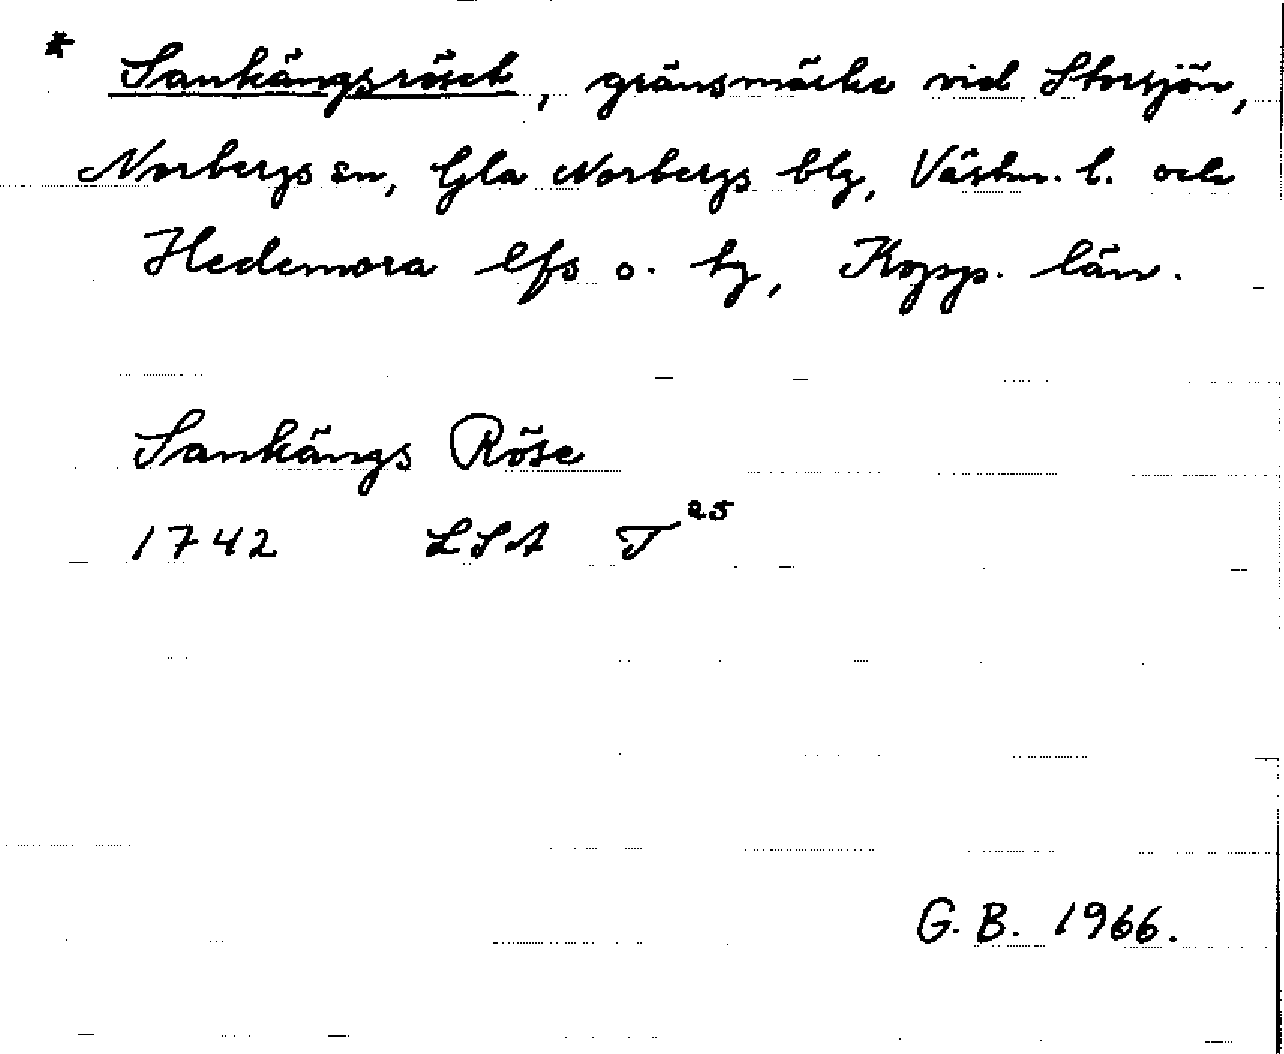 * Sankängsröset, gränsmärke vid Storsjön,
Norbergs sn, Gla Norbergs blg, Västm. l. och
Hedemora lfs o. tg, Kopp. län.
Sankängs Röse
1742 LSA T²⁵
G. B. 1966.